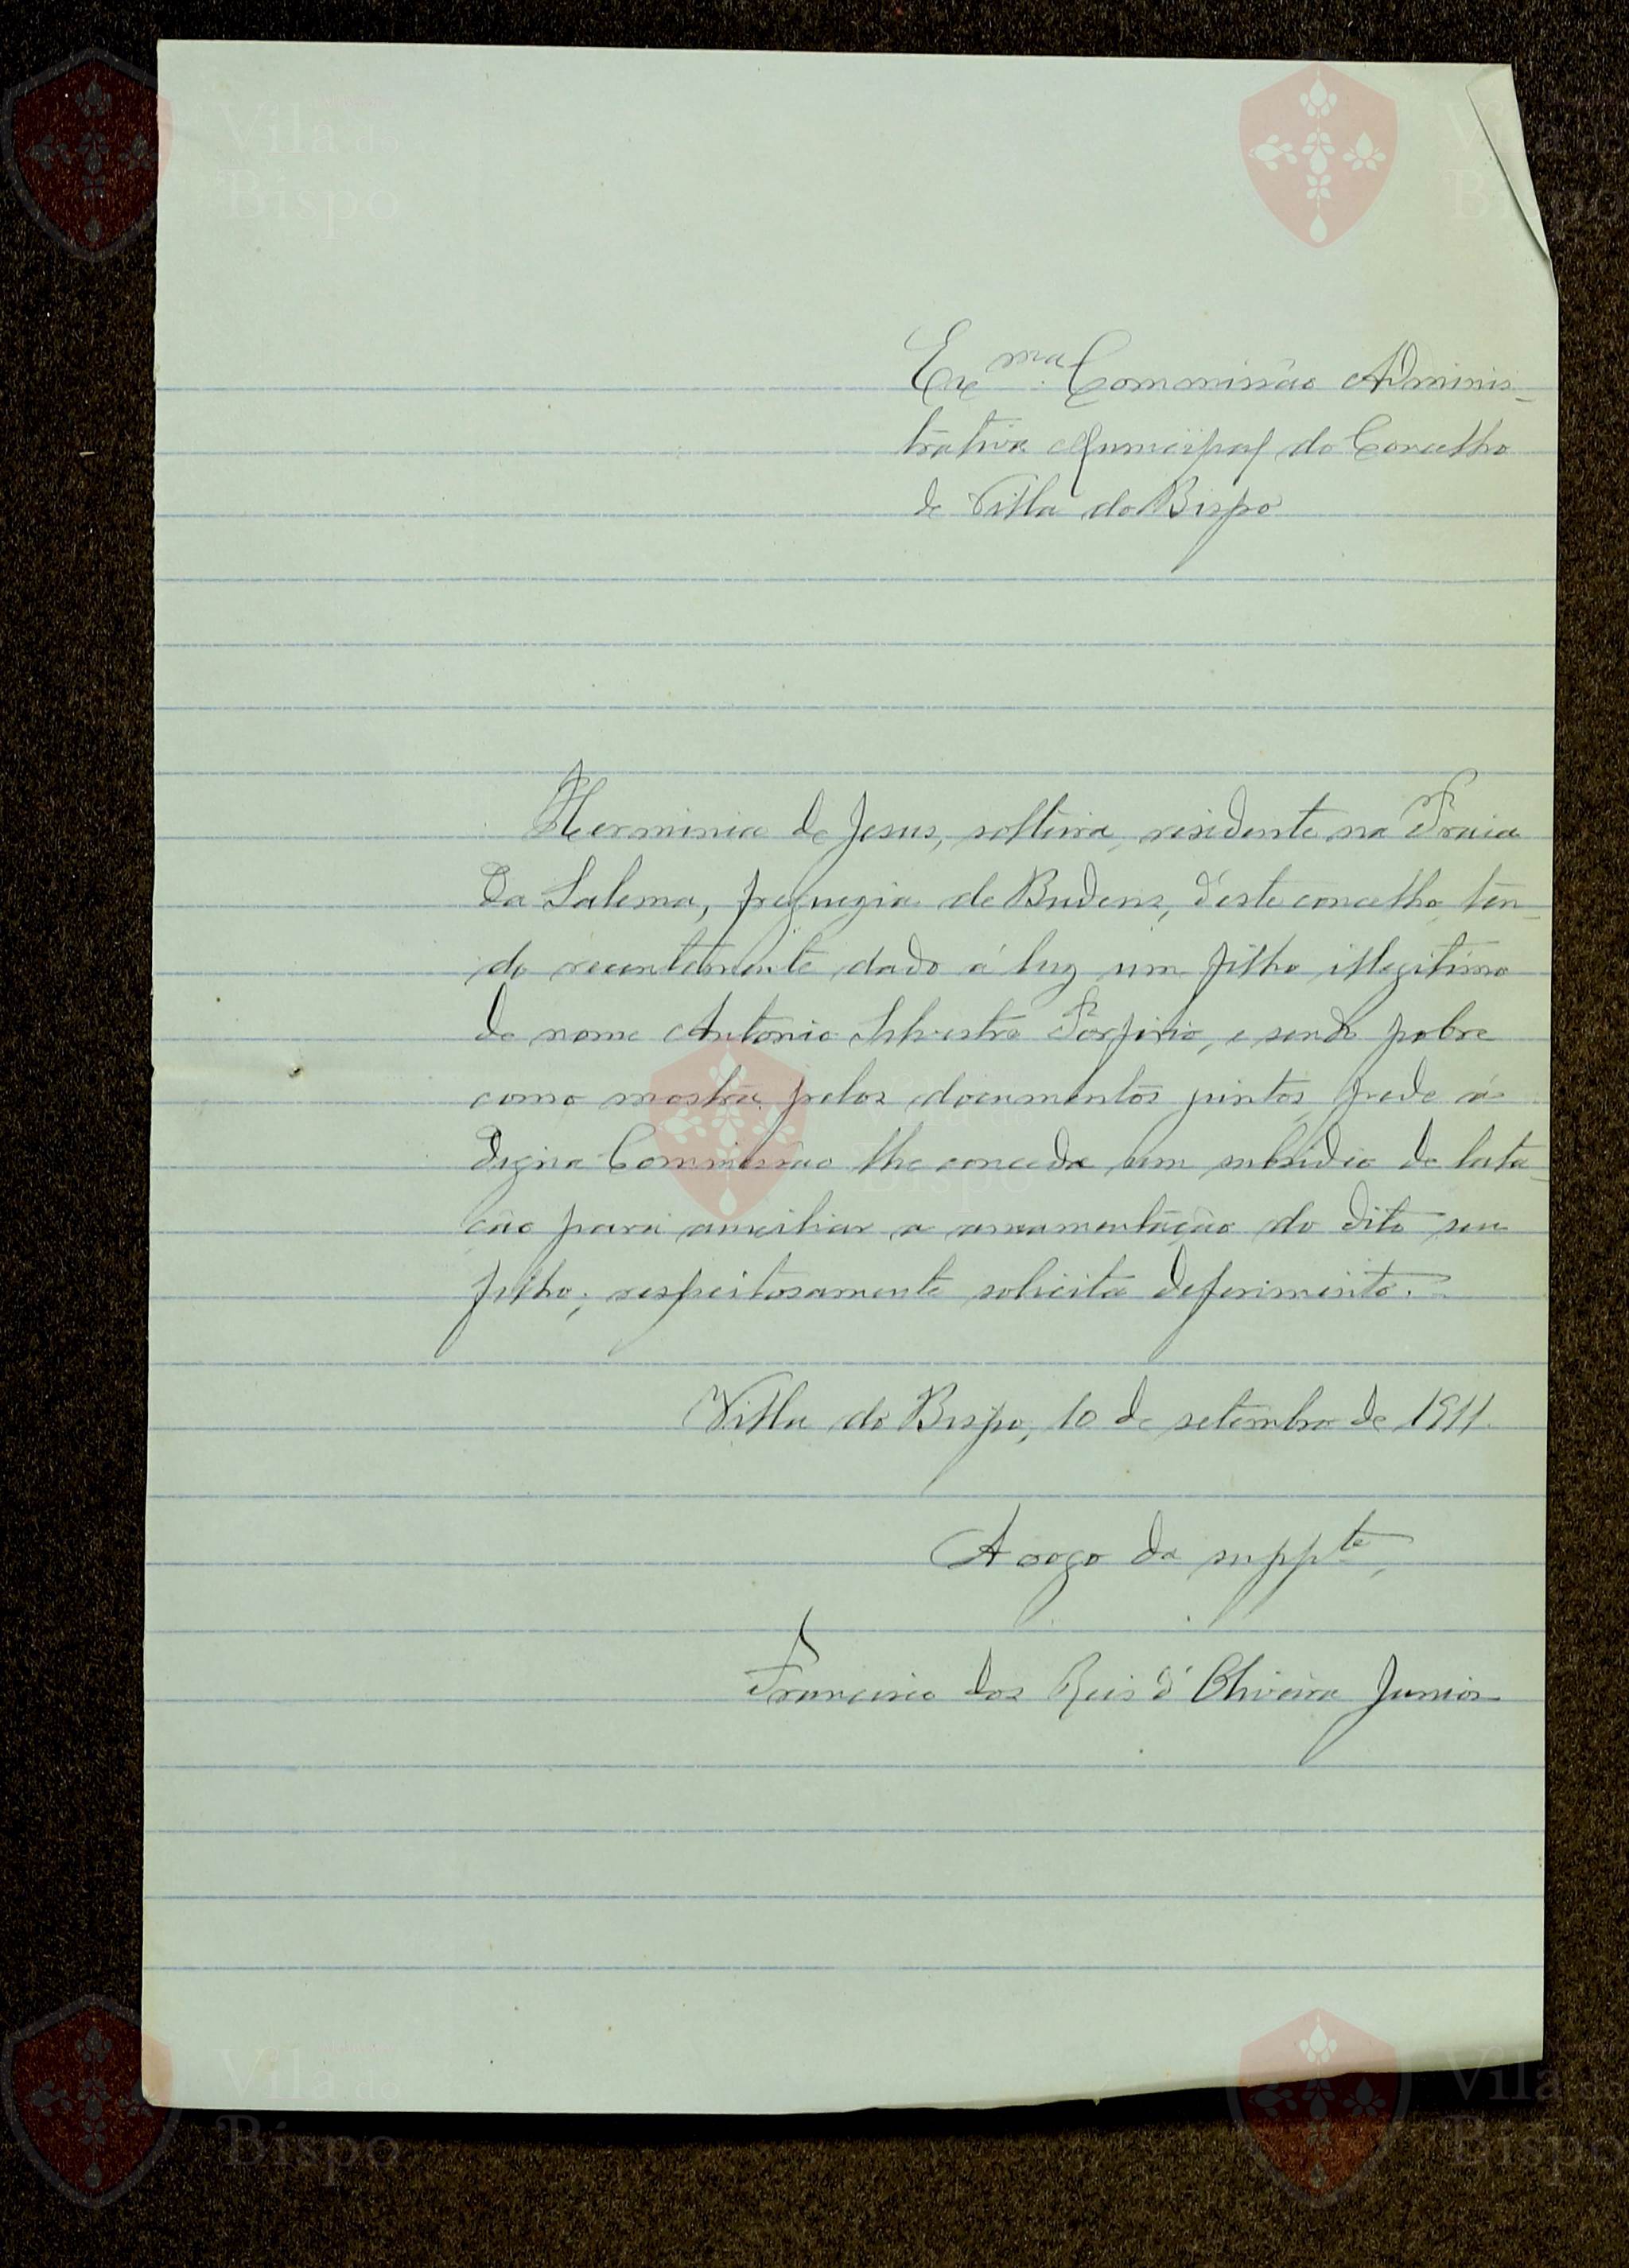 Exma. Commissão Adminis-
trativa Municipal do Concelho
de Villa do Bispo
Herminia de Jesus, solteira, residente na Praia
da Salema, freguezia de Budens, d'este concelho, ten-
do recentemente dado á luz um filho illegitimo
de nome Antonio Silvestre Porfirio, e sendo pobre
como mostra pelos documentos juntos, pede á
Digna Commissão lhe conceda um subsidio de lacta-
ção para auxiliar a amamentação do dito seu
filho; respeitosamente solicita deferimento.
Villa do Bispo, 10 de setembro de 1911.
A rogo da suppte,
Francisco dos Reis d'Oliveira Junior
Vila do
Bispo